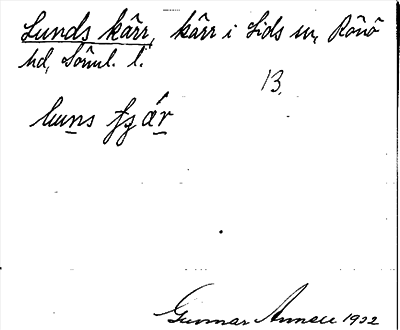 Lunds kärr, kärr i Lids sn, Rönö
hd, Söml. l.
13.
Gunnar Annell 1932